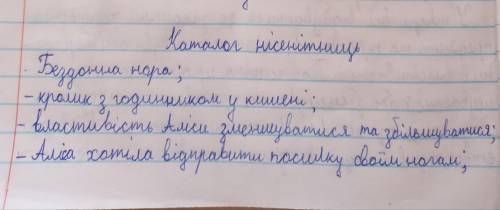 Каталог нісенітниць
- Бездонна нора;
- кролик з годинником у кишені;
- властивість Аліси зменшуватися та збільшуватися;
- Аліса хотіла відправити посилку своїм ногам;